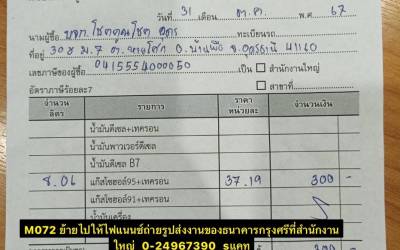 วันที่ 31 เดือน ต.ค. พ.ศ 67
นามผู้ซื้อ บจก. โชตคูณโชต อุดร ทะเบียนรถ
ที่อยู่ 308 ม.7 ต.หายโศก อ.บ้านผือ จ.อุดรธานี 41160
เลขภาษีของผู้ซื้อ 0415554000050 เป็น สำนักงานใหญ่
อัตราภาษีร้อยละ7 สาขาที่
จำนวนลิตร รายการ ราคาหน่วยละ จำนวนเงิน
น้ำมันดีเซล+เทครอน
น้ำมันพาวเวอร์ดีเซล
น้ำมันดีเซล B7
8.06 แก๊สโซฮอล์95+เทครอน 37.19 300 -
แก๊สโซฮอล์91+เทครอน
น้ำมันเครื่อง
M072 ย้ายไปให้ไฟแนนซ์ถ่ายรูปส่งงานของธนาคารกรุงศรีที่สำนักงาน
ใหญ่ 0-24967390 รแคท
300 -